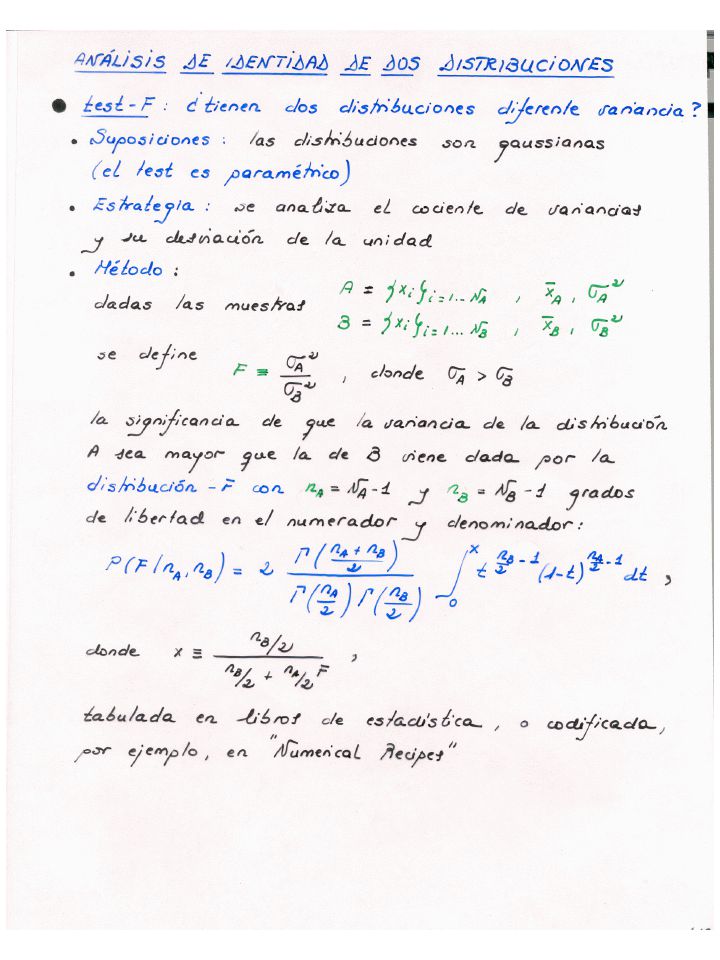 ANÁLISIS DE IDENTIDAD DE DOS DISTRIBUCIONES
● test-F: ¿tienen dos distribuciones diferente varianza?
• Suposiciones: las distribuciones son gaussianas
(el test es paramétrico)
• Estrategia: se analiza el cociente de varianzas
y su desviación de la unidad
• Método:
dadas las muestras A = {x_i}_{i=1...N_A} , x̄_A, σ_A²
B = {x_i}_{i=1...N_B} , x̄_B, σ_B²
se define F ≡ σ_A²/σ_B² , donde σ_A > σ_B
la significancia de que la varianza de la distribución
A sea mayor que la de B viene dada por la
distribución-F con n_A = N_A-1 y n_B = N_B-1 grados
de libertad en el numerador y denominador:
P(F/n_A, n_B) = 2 Γ((n_A + n_B)/2) / (Γ(n_A/2) Γ(n_B/2)) ∫_0^x t^{n_B/2 - 1} (1-t)^{n_A/2 - 1} dt ,
donde x ≡ (n_B/2) / (n_B/2 + n_A/2 F) ,
tabulada en libros de estadística, o codificada,
por ejemplo, en "Numerical Recipes"